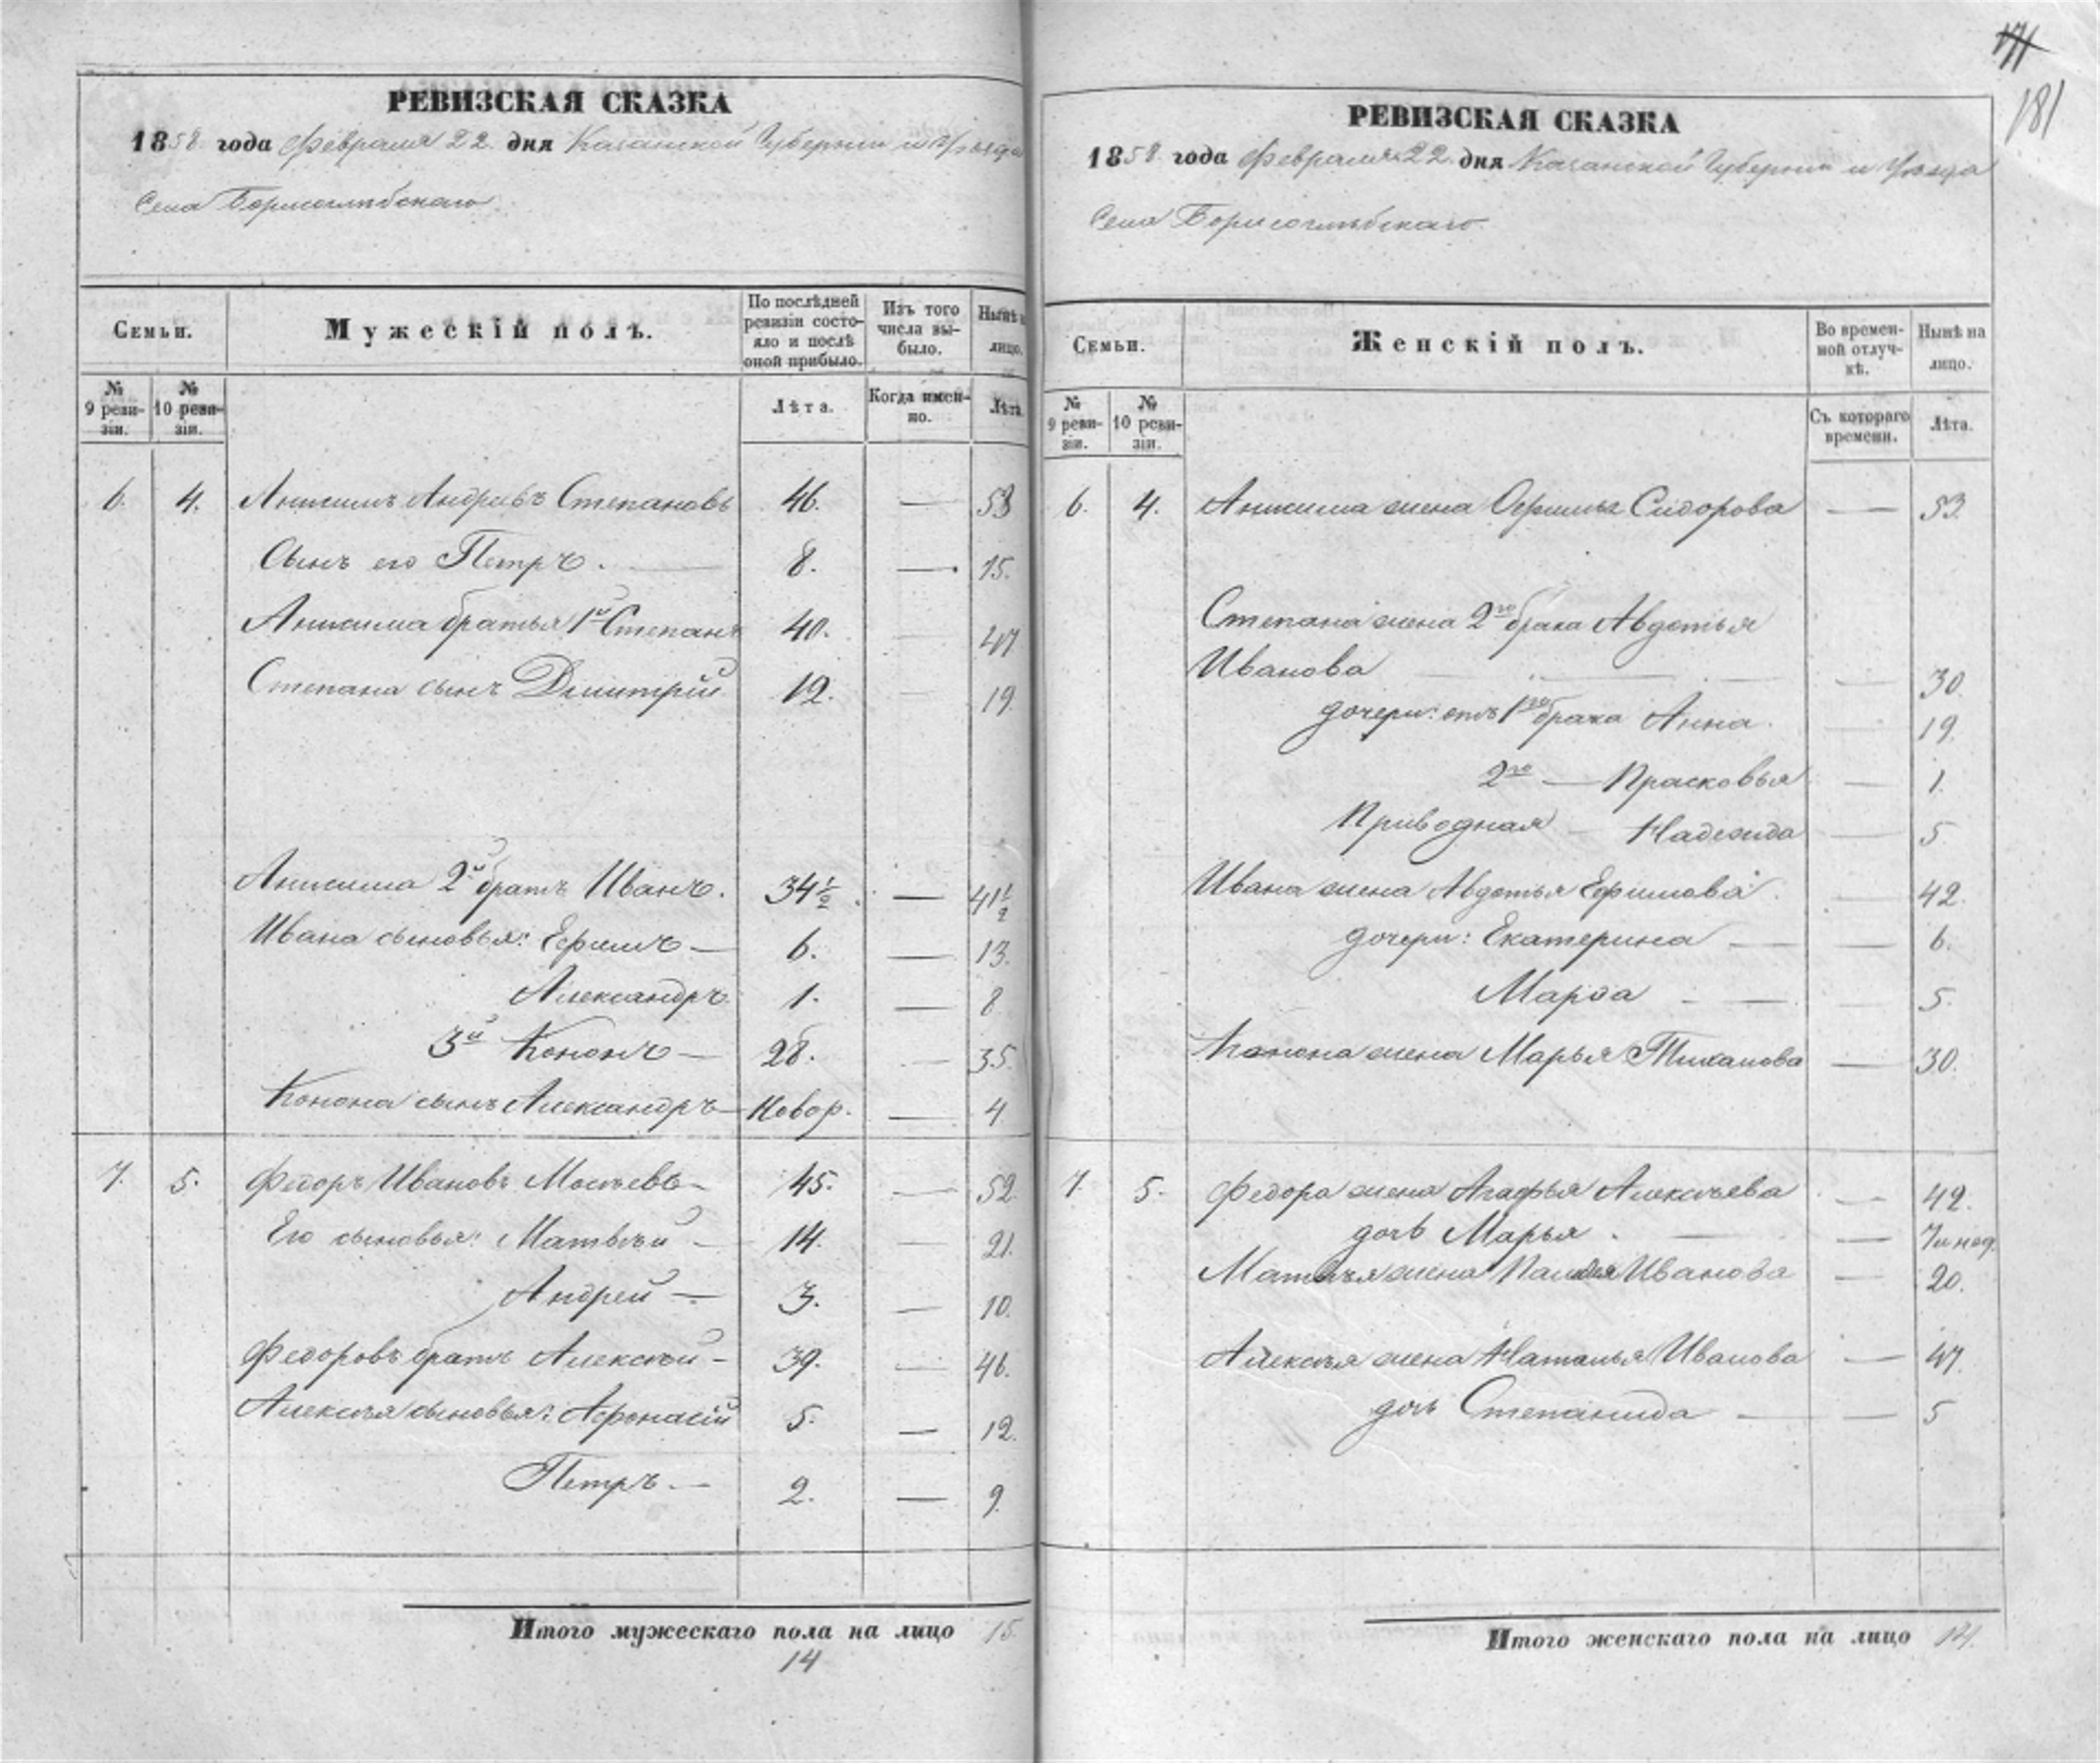 171
181
РЕВИЗСКАЯ СКАЗКА
1858 года Февраля 22 дня Казанской Губернии и Уѣзда
Села Борисоглѣбскаго
Семьи.
Мужескій полъ.
По послѣдней ревизіи состояло и послѣ оной прибыло.
Изъ того числа выбыло.
Нынѣ на лицо.
№ 9 ревизіи.
№ 10 ревизіи.
Лѣта.
Когда именно.
Лѣта.
6. 4. Анисимъ Андреевъ Степановъ 46. — 53
Сынъ его Петръ. — 8. — 15.
Анисима братья 1й Степанъ 40. — 47
Степана сынъ Дмитрій 12. — 19.
Анисима 2й братъ Иванъ. 34½. — 41½
Ивана сыновья: Ефимъ — 6. — 13.
Александръ. 1. — 8
3й Кононъ — 28. — 35.
Конона сынъ Александръ — Новор. — 4
7. 5. Федоръ Ивановъ Мосѣевъ — 45. — 52.
Его сыновья: Матвѣй — 14. — 21.
Андрей — 3. — 10.
Федоровъ братъ Алексѣй — 39. — 46.
Алексѣя сыновья: Афонасій 5. — 12.
Петръ. — 2. — 9.
Итого мужескаго пола на лицо 15.
14
РЕВИЗСКАЯ СКАЗКА
1858 года Февраля 22 дня Казанской Губерніи и Уѣзда
Села Борисоглѣбскаго.
Семьи.
Женскій полъ.
Во временной отлучкѣ.
Нынѣ на лицо.
№ 9 ревизіи.
№ 10 ревизіи.
Съ котораго времени.
Лѣта.
6. 4. Анисима жена Офимья Сидорова — 53.
Степана жена 2го брака Авдотья
Иванова — 30.
дочери: отъ 1го брака Анна. — 19.
2го — Прасковья — 1.
Приводная — Надежда — 5
Ивана жена Авдотья Ефимова. — 42.
дочери: Екатерина — — 6.
Марѳа — — 5.
Конона жена Марья Тиханова — 30.
7. 5. Федора жена Агафья Алексѣева — 42.
дочь Марья. — — 7и нед.
Матвѣя жена Иванова — 20.
Алексѣя жена Наталья Иванова — 47.
дочь Степанида — — 5
Итого женскаго пола на лицо 14.